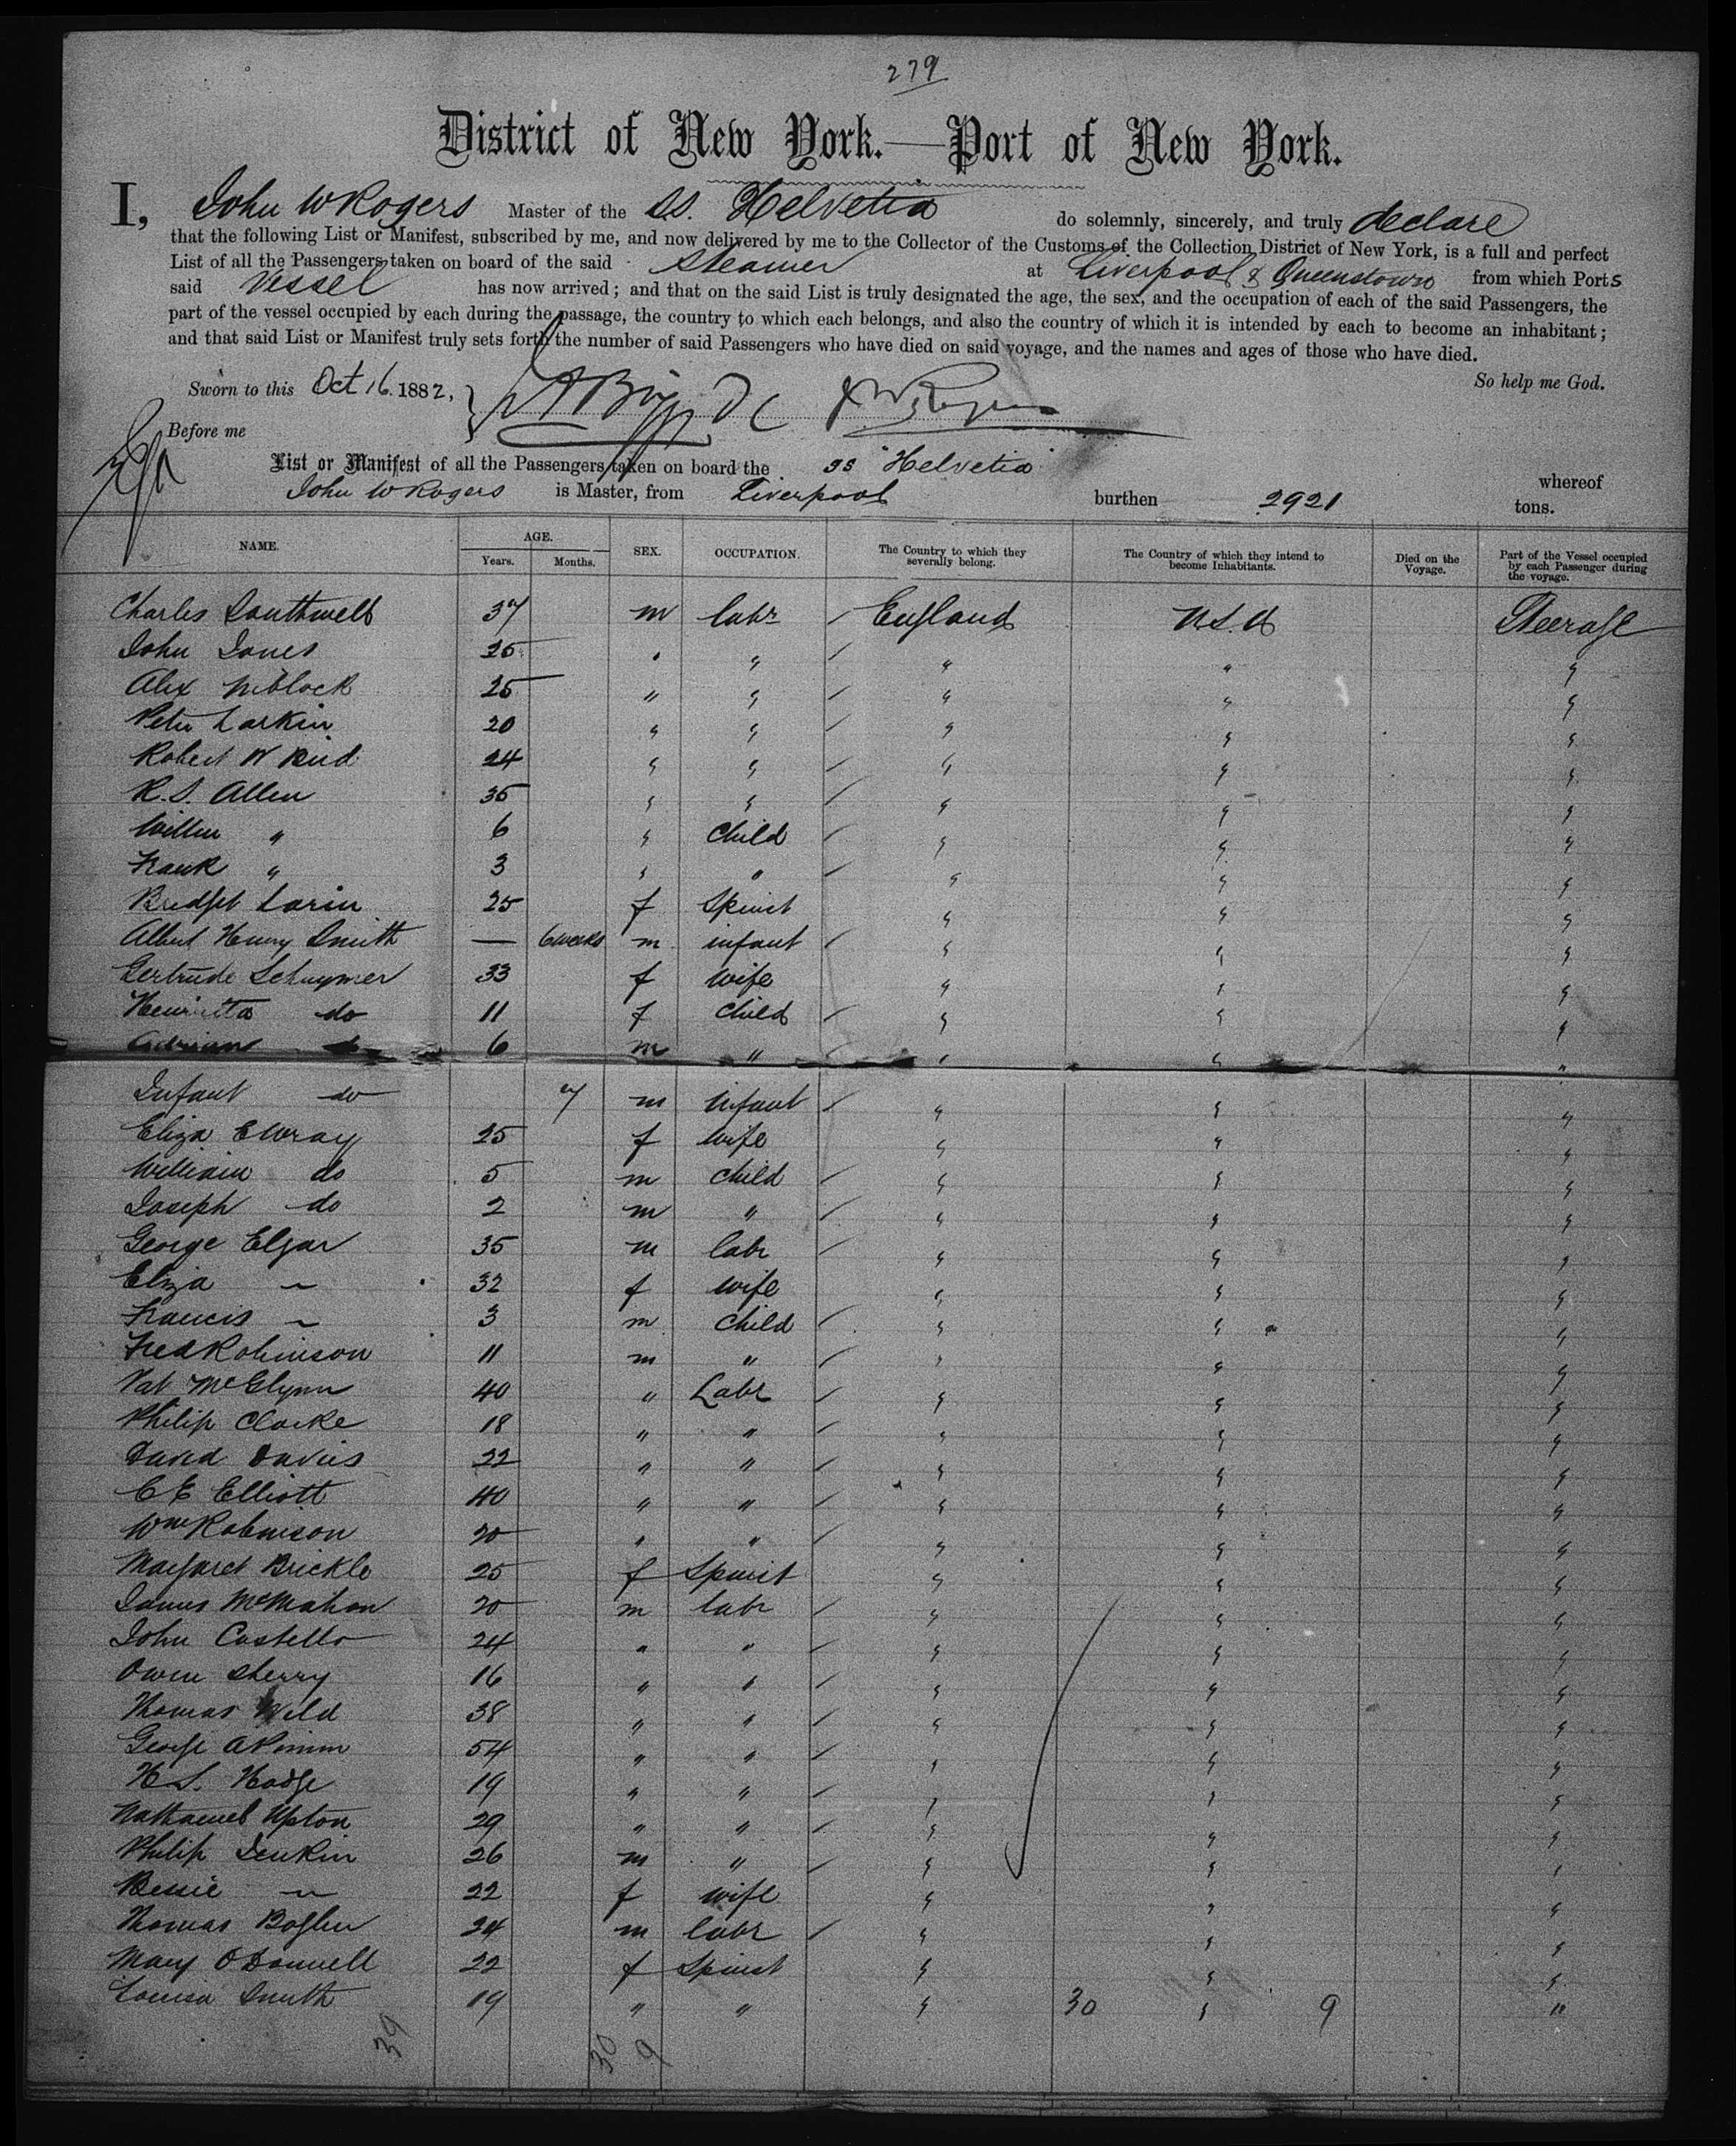 279
District of New York.—Port of New York.
I, John W Rogers Master of the SS. Helvetia do solemnly, sincerely, and truly declare
that the following List or Manifest, subscribed by me, and now delivered by me to the Collector of the Customs of the Collection District of New York, is a full and perfect
List of all the Passengers taken on board of the said Steamer at Liverpool & Queenstown from which Ports
said Vessel has now arrived; and that on the said List is truly designated the age, the sex, and the occupation of each of the said Passengers, the
part of the vessel occupied by each during the passage, the country to which each belongs, and also the country of which it is intended by each to become an inhabitant;
and that said List or Manifest truly sets forth the number of said Passengers who have died on said voyage, and the names and ages of those who have died.
So help me God.
Sworn to this Oct 16. 1882,
Before me
List or Manifest of all the Passengers taken on board the ss "Helvetia" whereof
John W Rogers is Master, from Liverpool burthen 2921 tons.
NAME. AGE. Years. Months. SEX. OCCUPATION. The Country to which they severally belong. The Country of which they intend to become Inhabitants. Died on the Voyage. Part of the Vessel occupied by each Passenger during the voyage.
Charles Southwell 37 m labr England U.S.A Steerage
John Jones 25 " " " " "
Alex Niblock 25 " " " " "
Peter Larkin 20 " " " " "
Robert W Reid 24 " " " " "
R. S. Allen 35 " " " " "
Willm " 6 " Child " " "
Frank " 3 " " " " "
Bridget Larin 25 f Spinst " " "
Albert Henry Smith — 6 weeks m infant " " "
Gertrude 33 f Wife " " "
Henrietta do 11 f Child " " "
Adrian do 6 m " " " "
Infant do 7 m Infant " " "
Eliza Elwray 25 f Wife " " "
William do 5 m Child " " "
Joseph do 2 m " " " "
George Elgar 35 m labr " " "
Eliza ~ 32 f Wife " " "
Francis ~ 3 m Child " " "
Fred Robinson 11 m " " " "
Pat McGlynn 40 " Labr " " "
Philip Clarke 18 " " " " "
David Davies 22 " " " " "
C E Elliott 40 " " " " "
Wm Robinson 20 " " " " "
Margaret Brickle 25 f Spinst " " "
James McMahon 20 m labr " " "
John Costello 24 " " " " "
Owen Sherry 16 " " " " "
Thomas Wild 38 " " " " "
George 54 " " " " "
H S. Hodge 19 " " " " "
Nathaniel Upton 29 " " " " "
Philip Jenkin 26 m " " " "
Bessie ~ 22 f Wife " " "
Thomas 24 m labr " " "
Mary O'Donnell 22 f Spinst " " "
Louisa Smith 19 " " " 30 " 9 "
39 30 9